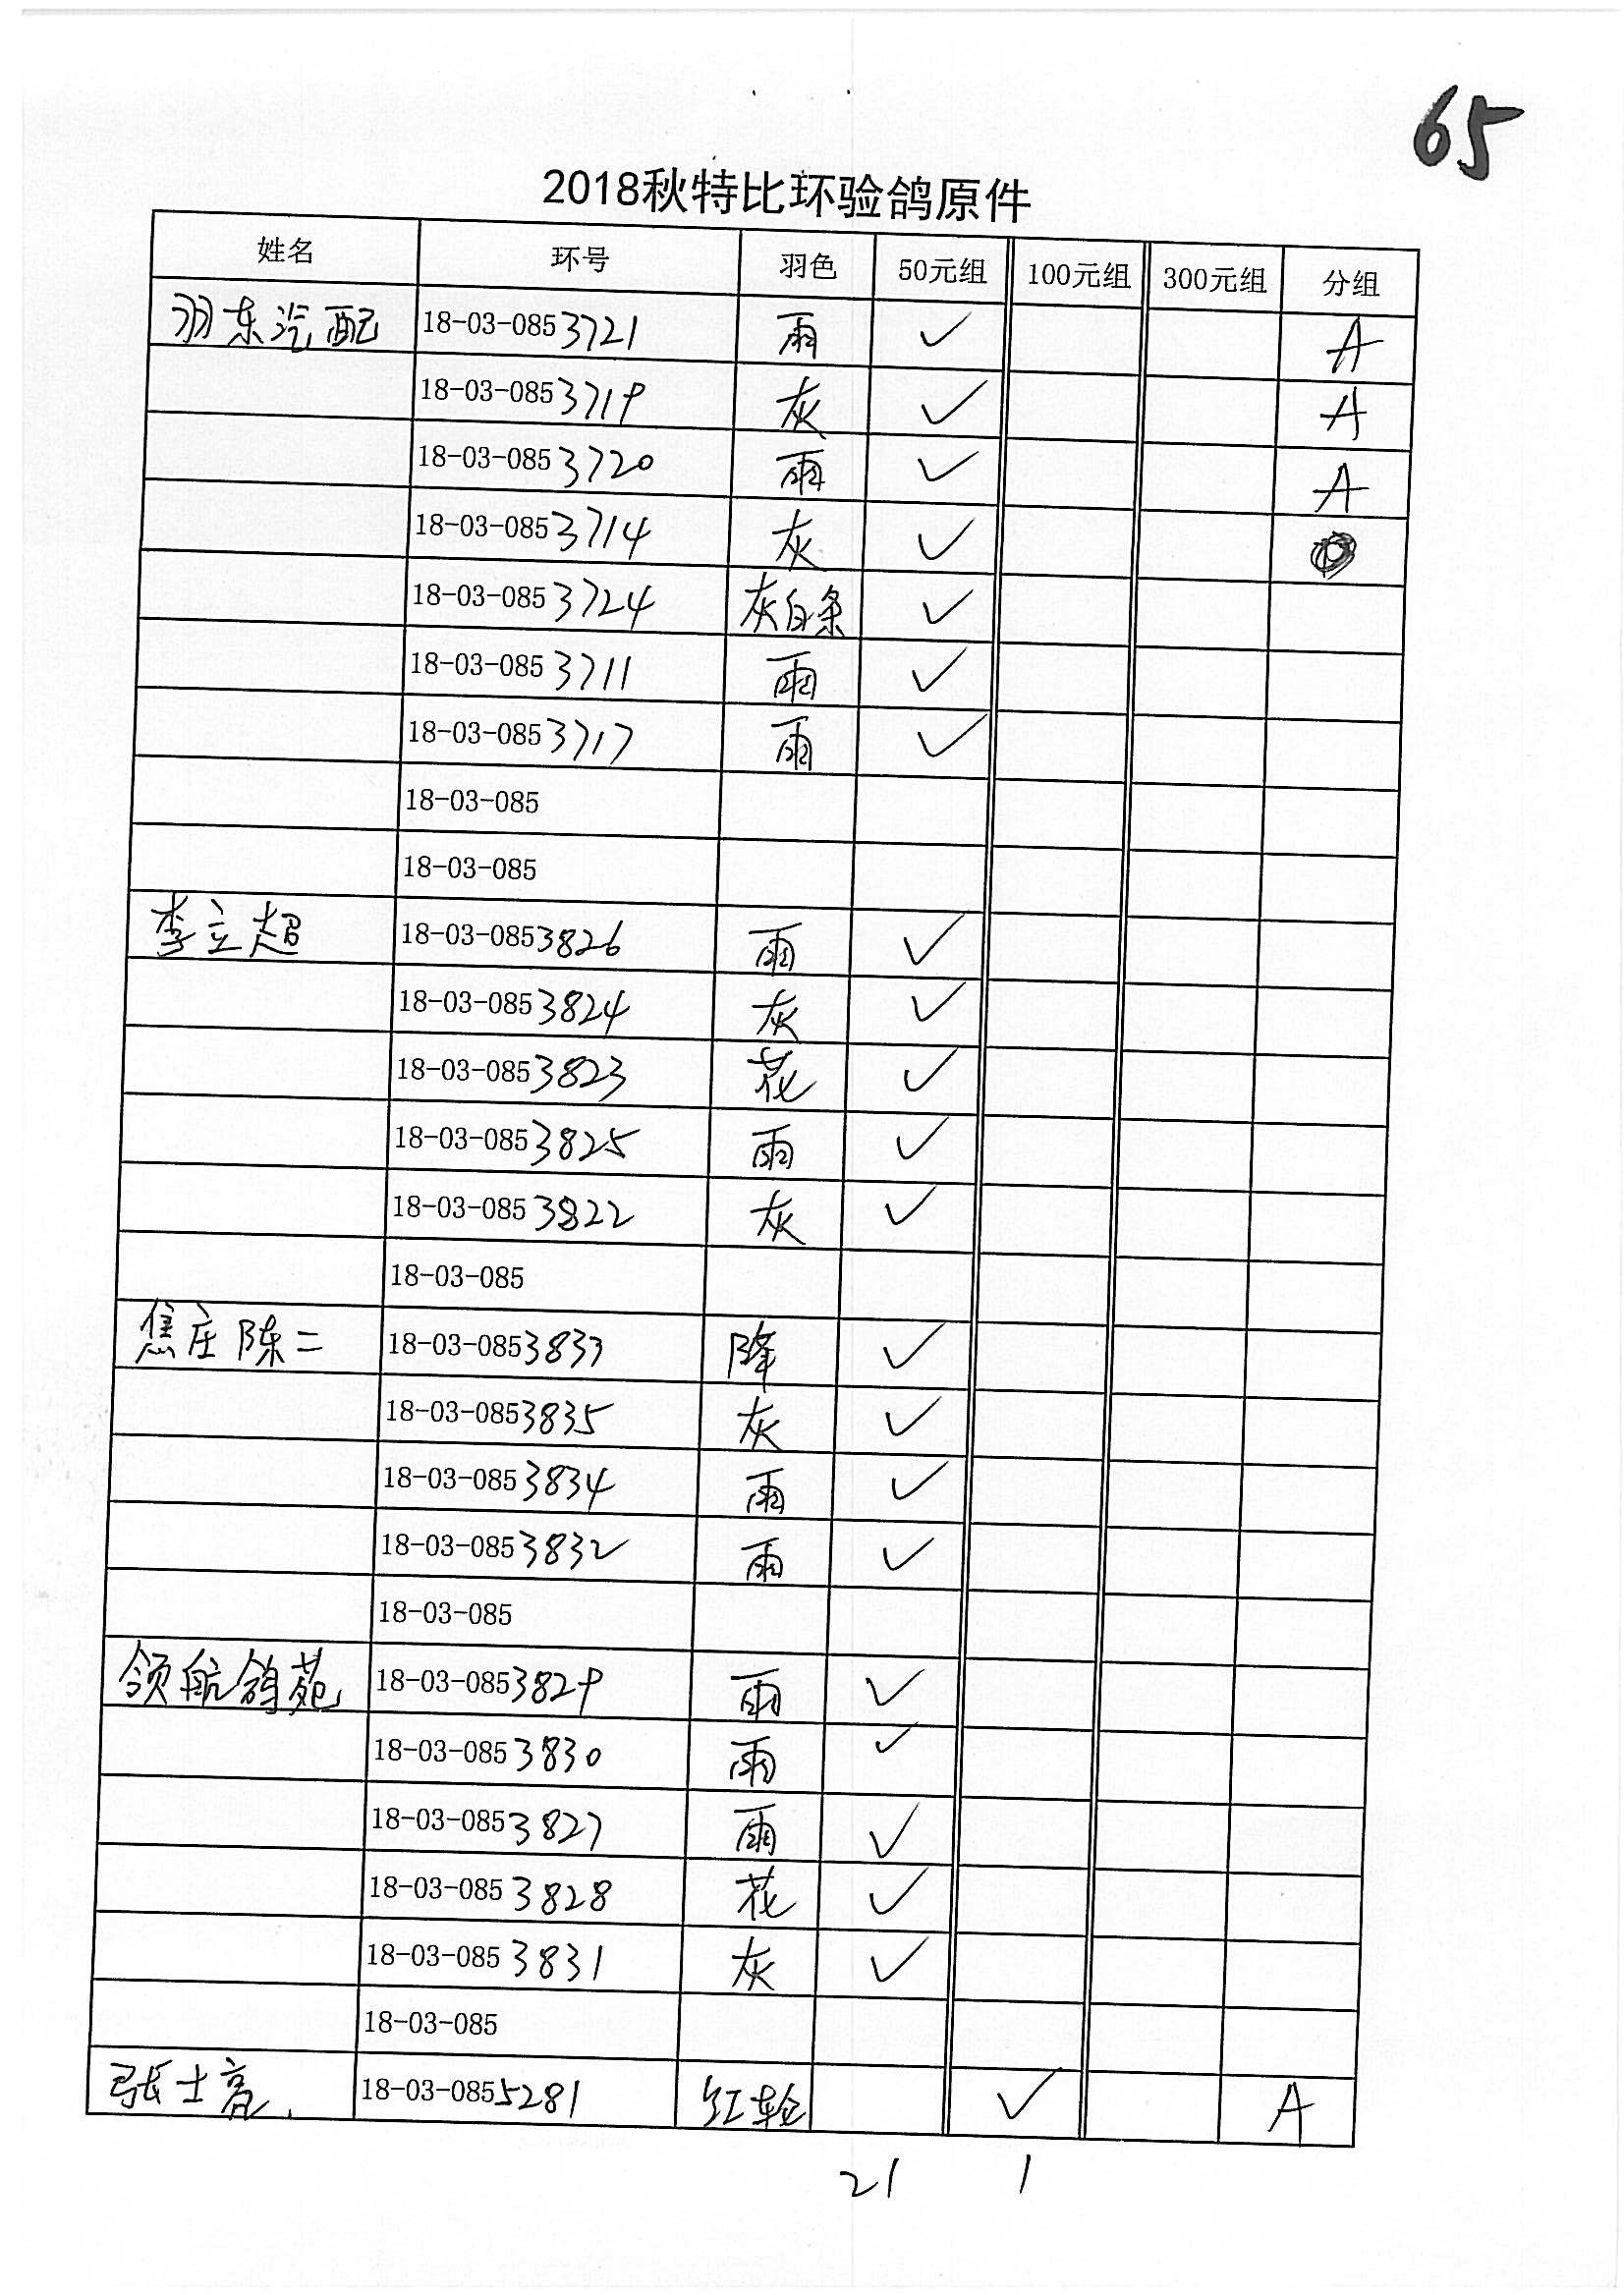 65
2018秋特比环验鸽原件
姓名 环号 羽色 50元组 100元组 300元组 分组
羽东汽配 18-03-0853721 雨 ✓ A
18-03-0853719 灰 ✓ A
18-03-0853720 雨 ✓ A
18-03-0853714 灰 ✓
18-03-0853724 灰白条 ✓
18-03-0853711 雨 ✓
18-03-0853717 雨 ✓
18-03-085
18-03-085
李立超 18-03-0853826 雨 ✓
18-03-0853824 灰 ✓
18-03-0853823 花 ✓
18-03-0853825 雨 ✓
18-03-0853822 灰 ✓
18-03-085
焦庄陈二 18-03-0853833 降 ✓
18-03-0853835 灰 ✓
18-03-0853834 雨 ✓
18-03-0853832 雨 ✓
18-03-085
领航鸽苑 18-03-0853829 雨 ✓
18-03-0853830 雨 ✓
18-03-0853827 雨 ✓
18-03-0853828 花 ✓
18-03-0853831 灰 ✓
18-03-085
张士亮 18-03-0855281 红轮 ✓ A
21 1